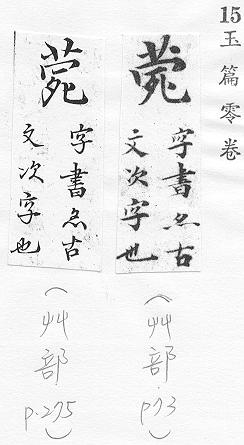 15 玉篇零卷
字書亦古
文次字也
(艸部 p73)
字書亦古
文次字也
(艸部 p.275)